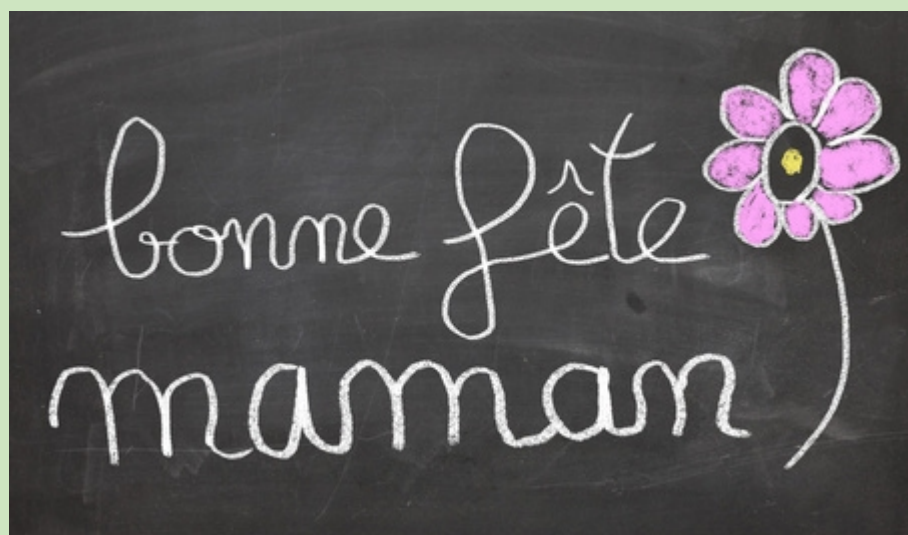 bonne fête
maman